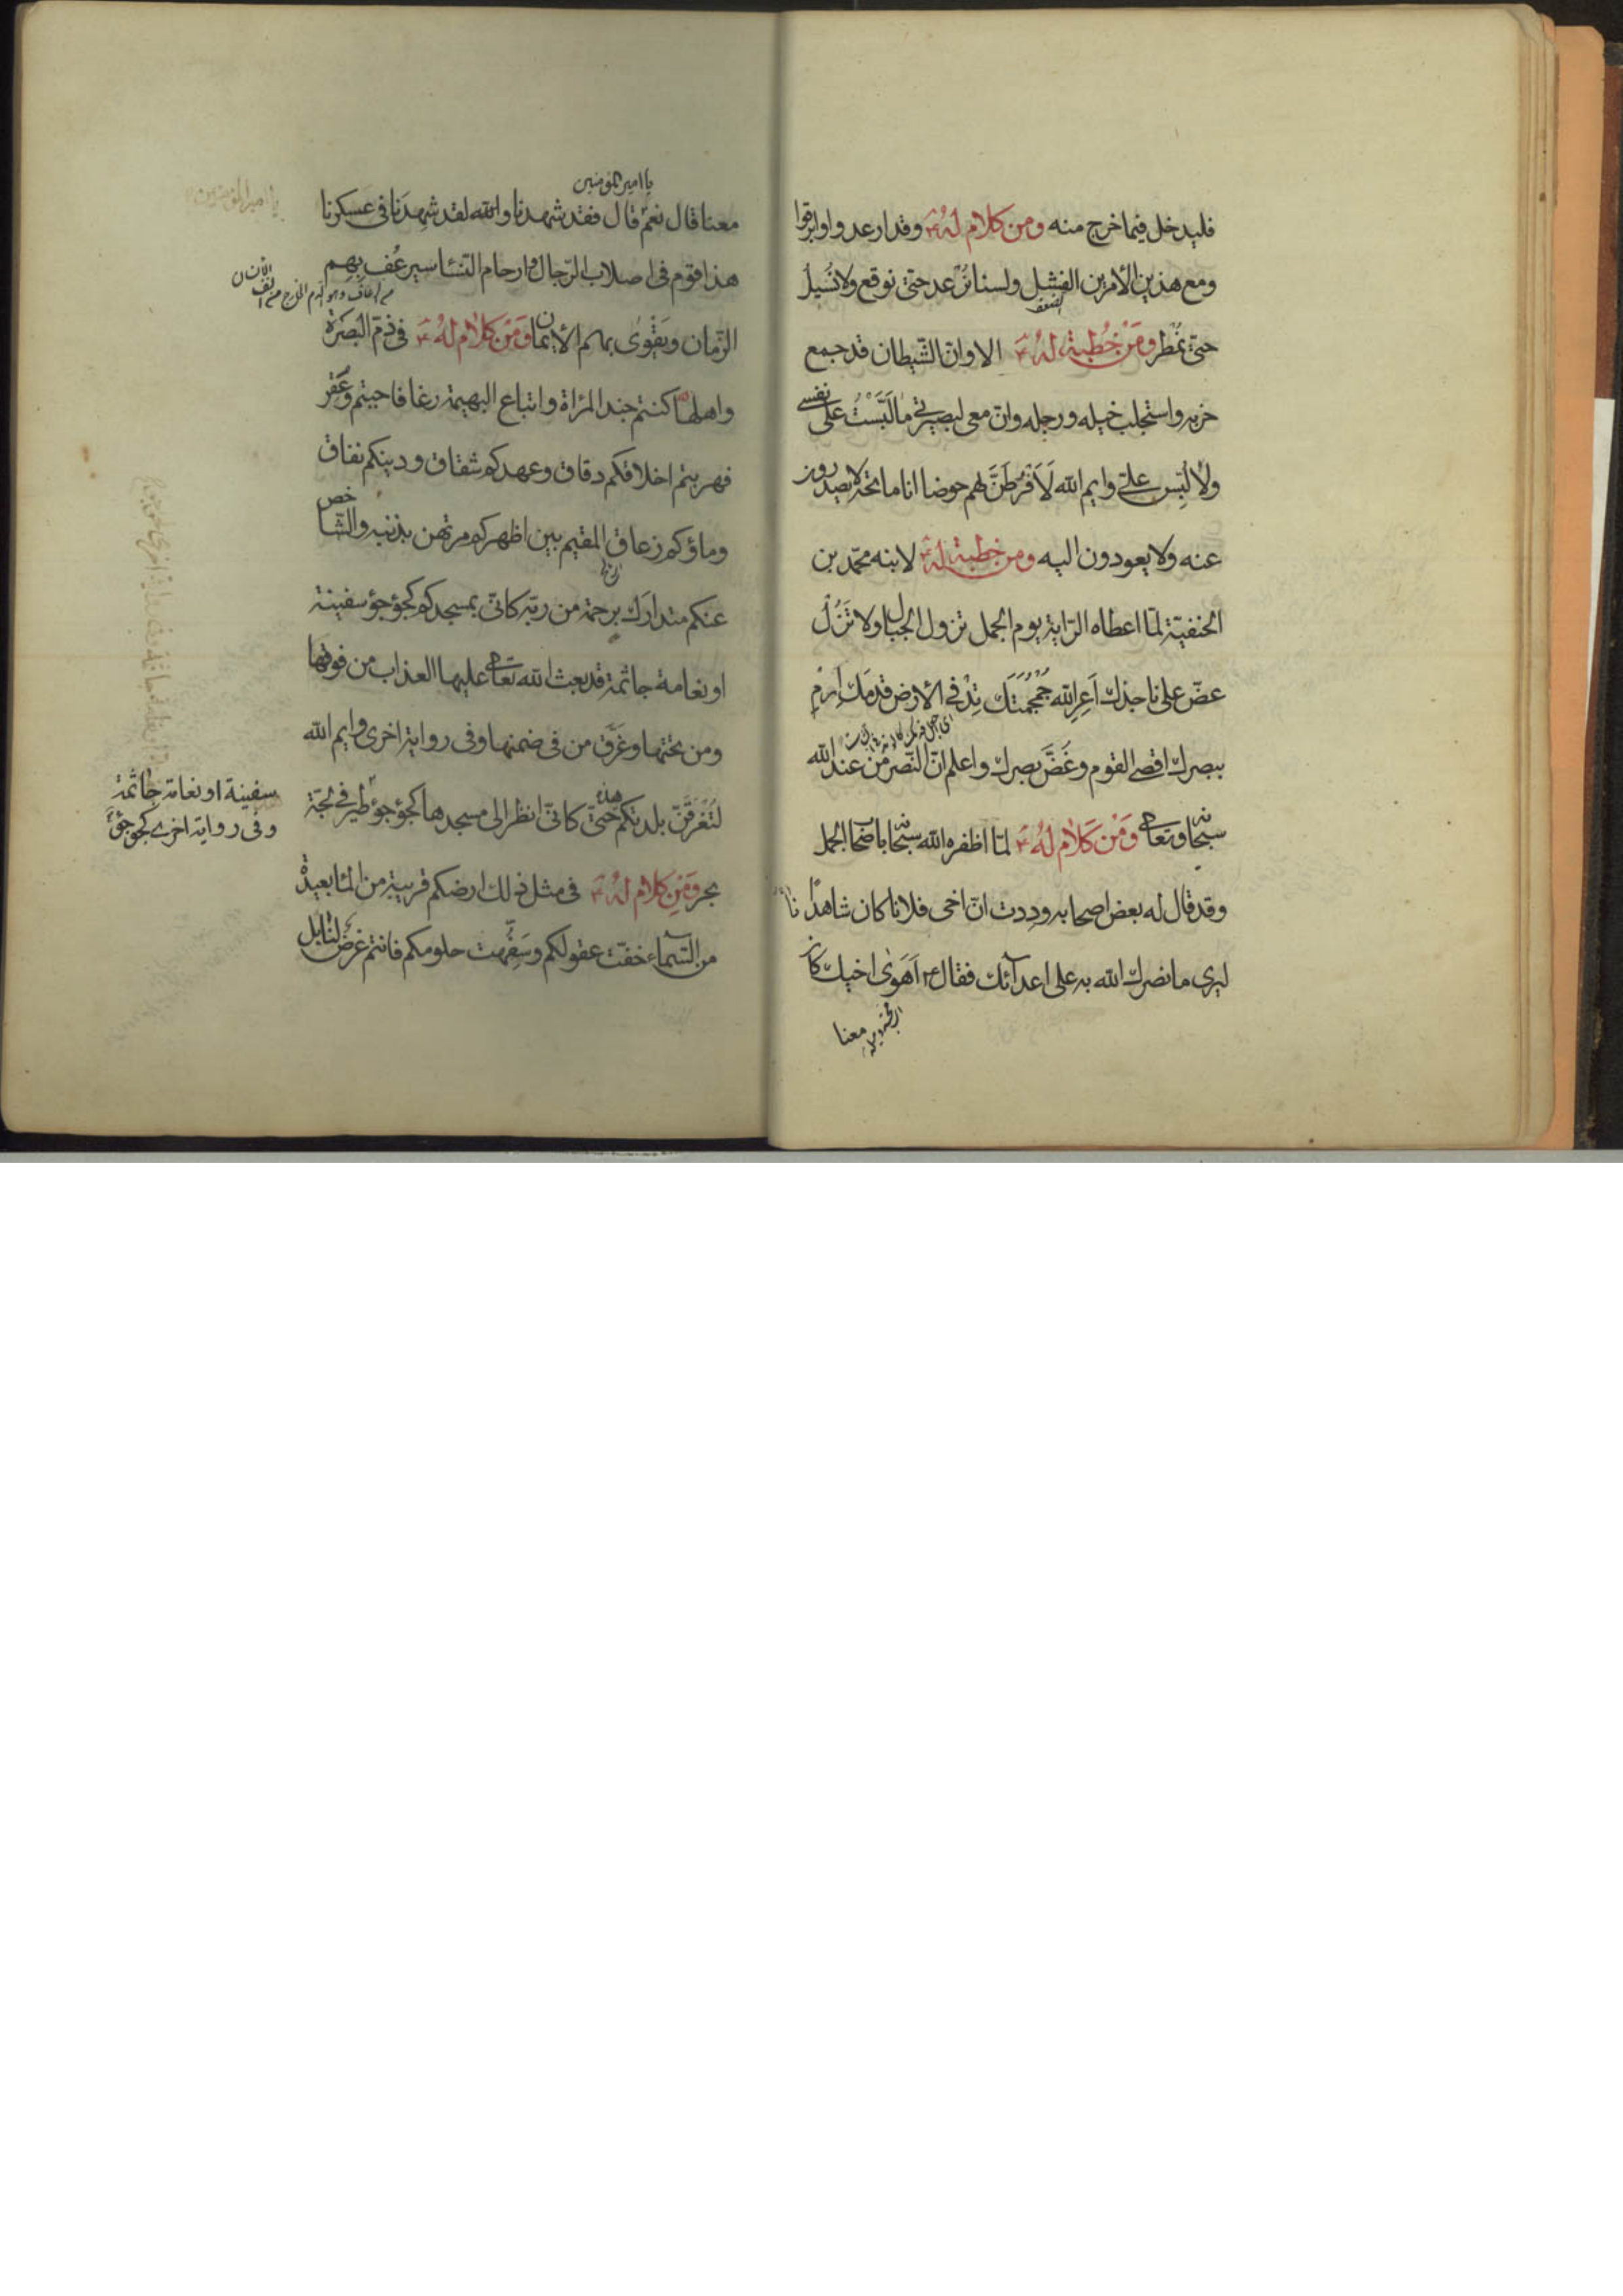 فليدخل فيما خرج منه ومن كلام له ع وقد ارعدوا وابرقوا
ومع هذين الأمرين الفشل ولسنا نُرعد حتى نوقع ولا نُسيلُ
حتى نُمطر ومن خُطبة له ع الا وان الشيطان قد جمع
حزبه واستجلب خيله ورجله وان معى لبصيرتى ما لَبَّسْتُ على نفسى
ولا لُبِّس علىّ وايم الله لَاَفْرُطَنَّ لهم حوضا انا ماتحه لا يصدرون
عنه ولا يعودون اليه ومن خطبة له ع لابنه محمّد بن
الحنفيّة لمّا اعطاه الرّاية يوم الجمل تزول الجبال ولا تَزُلْ
عضّ على ناجذك اَعِرِ الله جُمْجُمَتَكَ تِدْ فى الأرض قدمك اِرْمِ
ببصرك اقصى القوم وغُضَّ بصرك واعلم انّ النّصر من عند الله
سبحانه وتعالى ومن كلام له ع لمّا اظفره الله سبحانه باصحاب الجمل
وقد قال له بعض اصحابه وددت انّ اخى فلانا كان شاهدنا
ليرى ما نصرك الله به على اعدآئك فقال ع اَهَوىٰ اخيك كان
معنا
يا امير المؤمنين
معنا قال نعم قال فقد شهدنا والله لقد شهِدَنا فى عسكرنا
هذا قوم فى اصلاب الرّجال وارحام النّساء سيرعُف بِهِم
الزّمان ويَقْوىٰ بهم الأيمان ومن كلام له ع فى ذمّ البَصرَة
واهلها كنتم جند المرأة واتباع البهيمة رغا فاجبتم وعُقِر
فهربتم اخلاقكم دقاق وعهدكم شقاق ودينكم نفاق
وماؤكم زعاق المقيم بين اظهركم مرتهن بذنبه والشّاخص
عنكم متدارَك برحمة من ربّه كانّى بمسجدكم كجؤجؤ سفينة
او نعامة جاثمة قد بعث الله تعالى عليها العذاب من فوقها
ومن تحتها وغرّق من فى ضمنها وفى رواية اخرى وايم الله
لتُغرَقَنّ بلدتكم هذه حتىّ كانّى انظر الى مسجدها كجؤجؤ طير فى لجّة
سفينة او نعامة جاثمة
وفى رواية اخرى كجؤجؤ
بحر ومن كلام له ع فى مثل ذلك ارضكم قريبة من الماء بعيدة
من السّماء خفّت عقولكم وسَفِهت حلومكم فانتم غرض لنابل